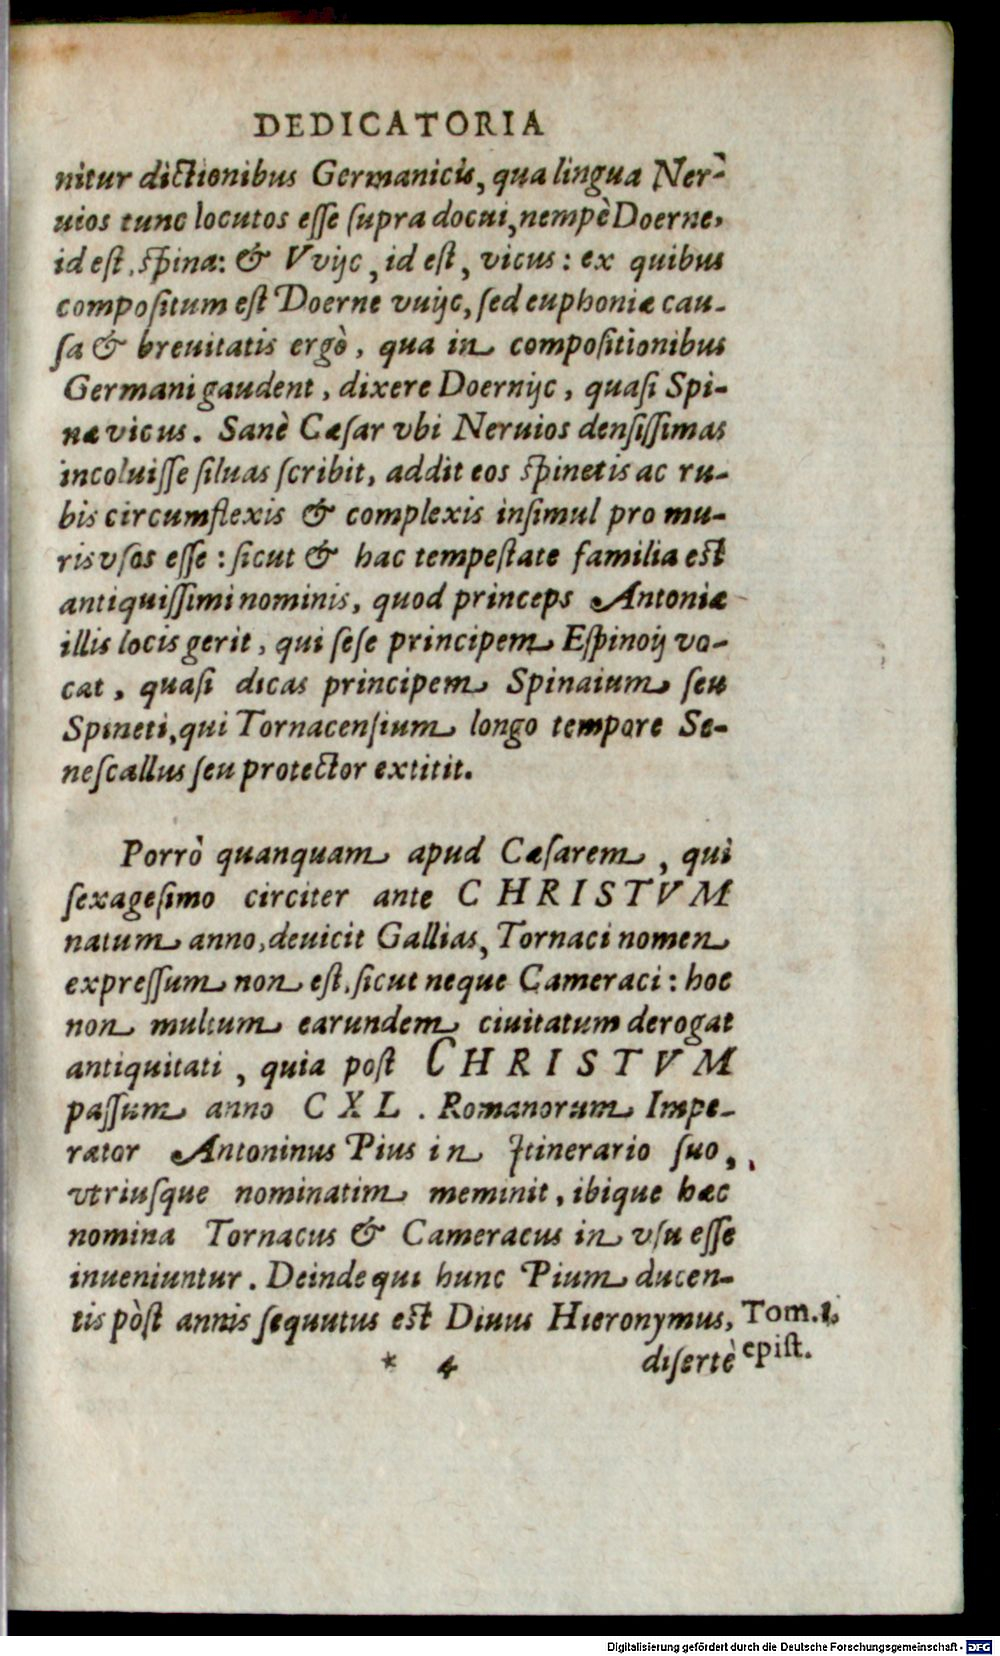 DEDICATORIA
nitur dictionibus Germanicis, qua lingua Ner-
uios tunc locutos esse supra docui, nempè Doerne,
id est, spina: & Vvijc, id est, vicus: ex quibus
compositum est Doerne vuijc, sed euphoniæ cau-
sa & breuitatis ergò, qua in compositionibus
Germani gaudent, dixere Doernijc, quasi Spi-
næ vicus. Sanè Cæsar vbi Neruios densissimas
incoluisse siluas scribit, addit eos spinetis ac ru-
bis circumflexis & complexis insimul pro mu-
ris vsos esse: sicut & hac tempestate familia est
antiquissimi nominis, quod princeps Antoniæ
illis locis gerit, qui sese principem Espinoij vo-
cat, quasi dicas principem Spinaium seu
Spineti, qui Tornacensium longo tempore Se-
nescallus seu protector extitit.
Porrò quanquam apud Cæsarem, qui
sexagesimo circiter ante CHRISTVM
natum anno, deuicit Gallias, Tornaci nomen
expressum non est, sicut neque Cameraci: hoc
non multum earundem ciuitatum derogat
antiquitati, quia post CHRISTVM
passum anno CXL. Romanorum Impe-
rator Antoninus Pius in Itinerario suo,
vtriusque nominatim meminit, ibique hæc
nomina Tornacus & Cameracus in vsu esse
inueniuntur. Deinde qui hunc Pium ducen-
tis pòst annis sequutus est Diuus Hieronymus, Tom. 1.
* 4 disertè epist.
Digitalisierung gefördert durch die Deutsche Forschungsgemeinschaft - DFG